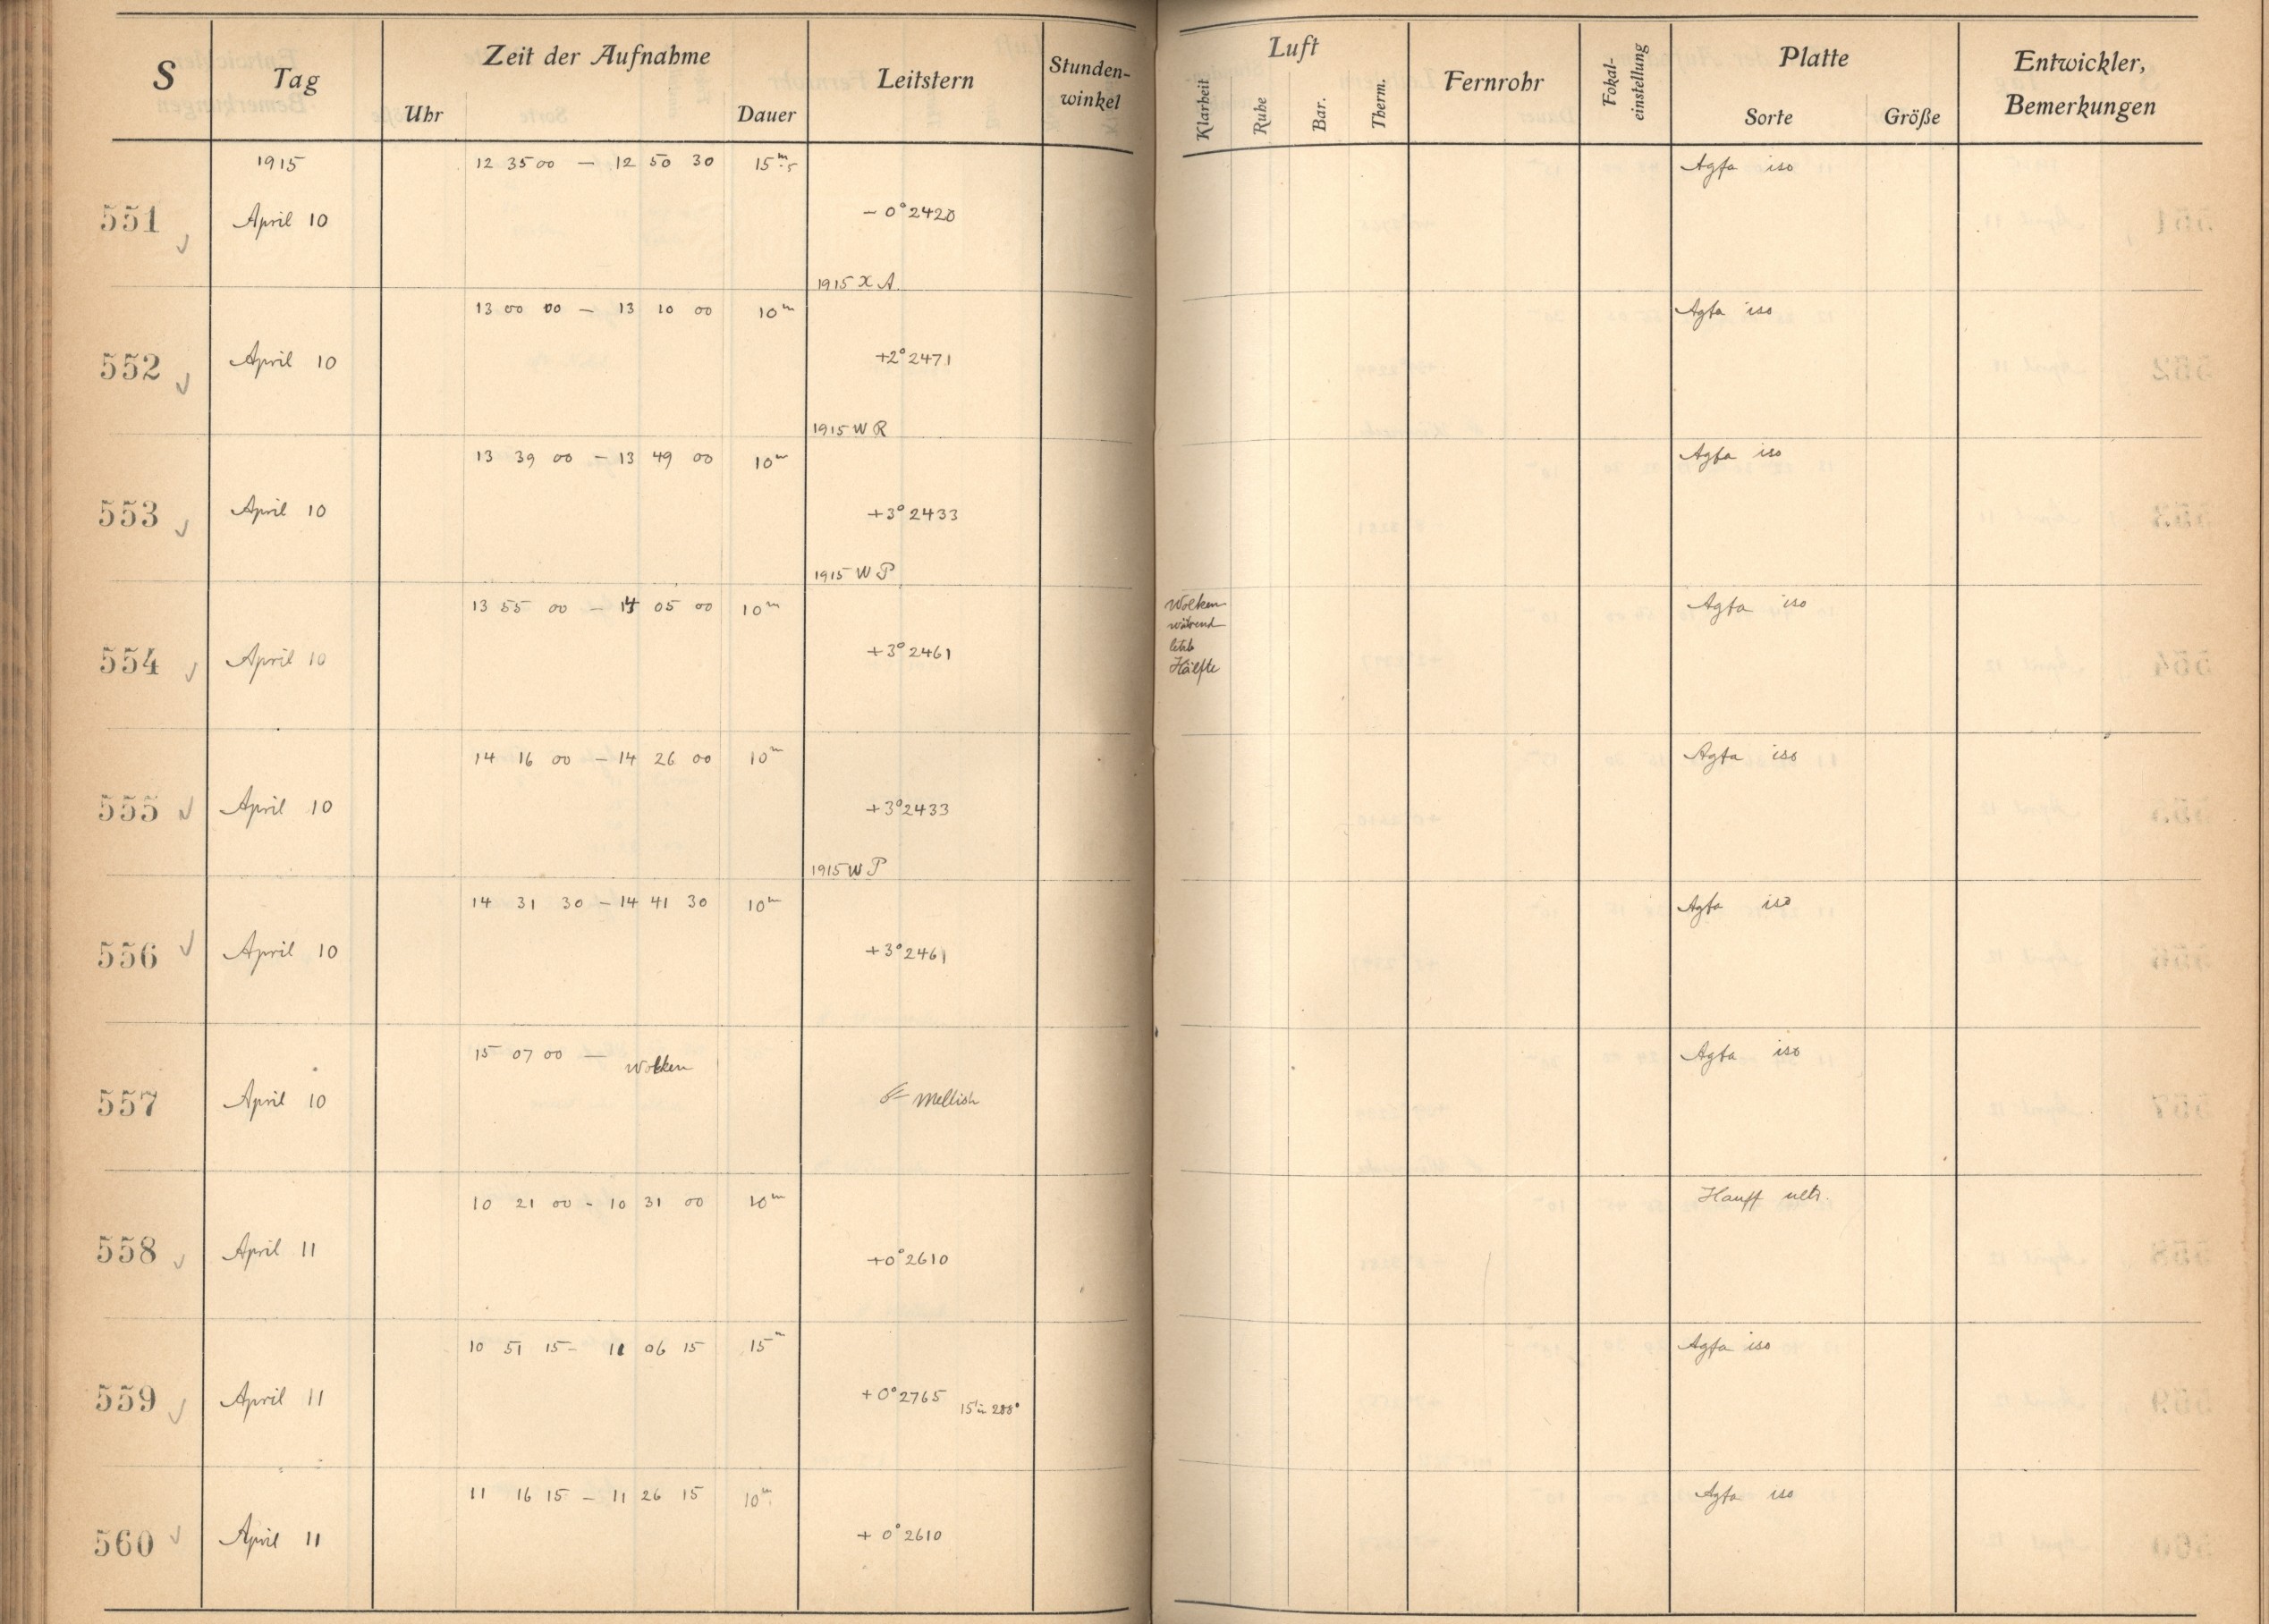 S Tag Zeit der Aufnahme Leitstern Stunden-winkel Luft Fernrohr Fokal-einstellung Platte Entwickler, Bemerkungen
Uhr Dauer Klarheit Ruhe Bar. Therm. Sorte Größe
1915 12 35 00 — 12 50 30 15ᵐ.5 Agfa iso
551 April 10 − 0° 2420
1915 X A
13 00 00 — 13 10 00 10ᵐ Agfa iso
552 April 10 +2° 2471
1915 W R
13 39 00 — 13 49 00 10ᵐ Agfa iso
553 April 10 +3° 2433
1915 W P
13 55 00 — 14 05 00 10ᵐ Wolken während letzte Hälfte Agfa iso
554 April 10 +3° 2461
14 16 00 — 14 26 00 10ᵐ Agfa iso
555 April 10 +3° 2433
1915 W P
14 31 30 — 14 41 30 10ᵐ Agfa iso
556 April 10 +3° 2461
15 07 00 — Wolken Agfa iso
557 April 10 Mellish
10 21 00 - 10 31 00 10ᵐ Hauff ultr.
558 April 11 +0° 2610
10 51 15 - 11 06 15 15ᵐ Agfa iso
559 April 11 +0° 2765
11 16 15 — 11 26 15 10ᵐ Agfa iso
560 April 11 + 0° 2610